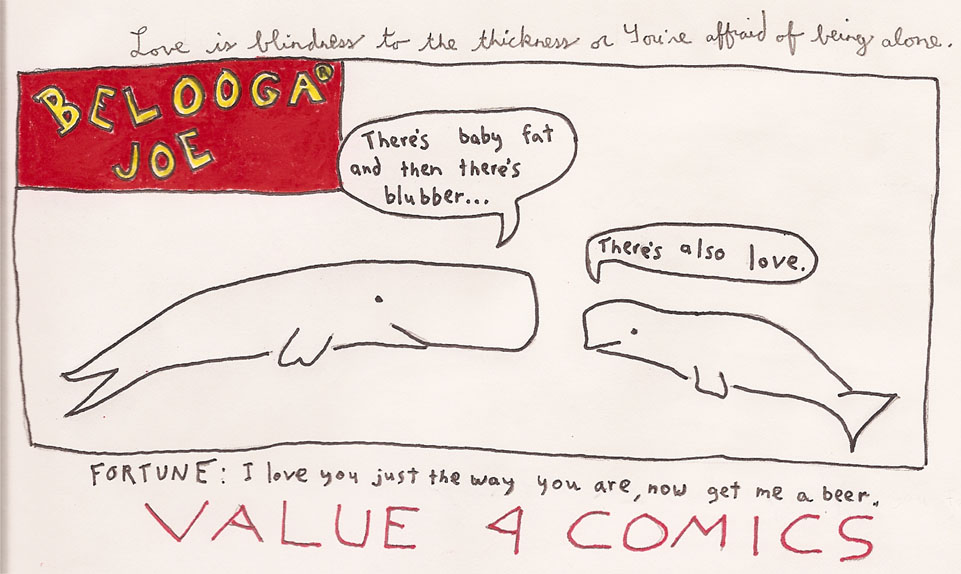 Love is blindness to the thickness or You're affraid of being alone.
BELOOGA®
JOE
There's baby fat
and then there's
blubber...
There's also love.
FORTUNE: I love you just the way you are, now get me a beer.
VALUE 4 COMICS